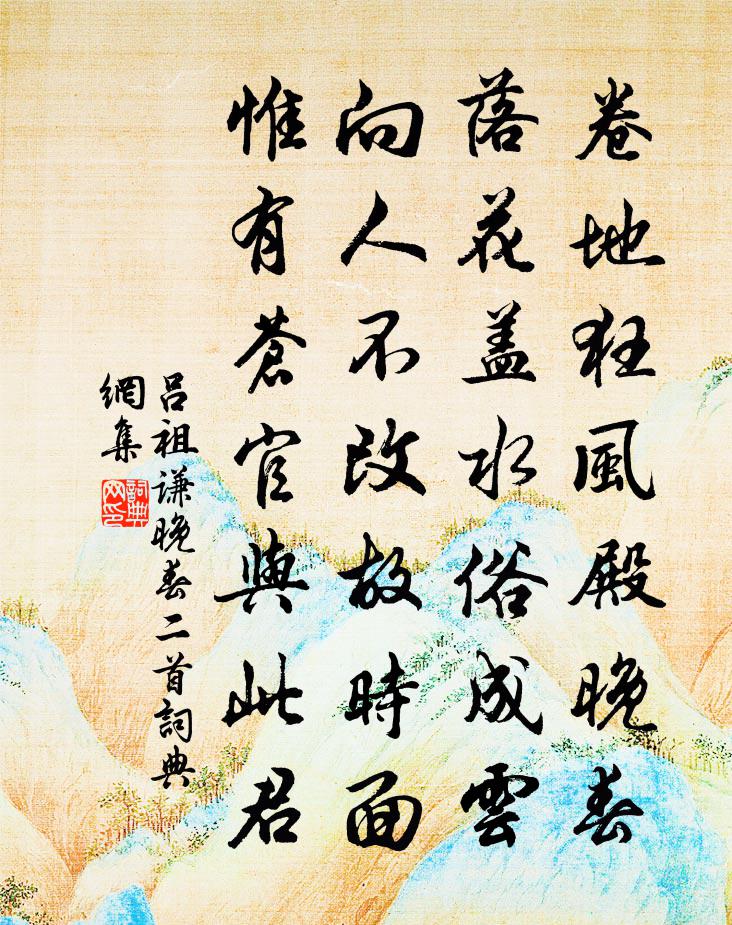 卷地狂風殿晚春
落花盖水俗成雲
向人不改故時面
惟有蒼官與此君
吕祖谦晚春二首詞典
網集
詞典
网印